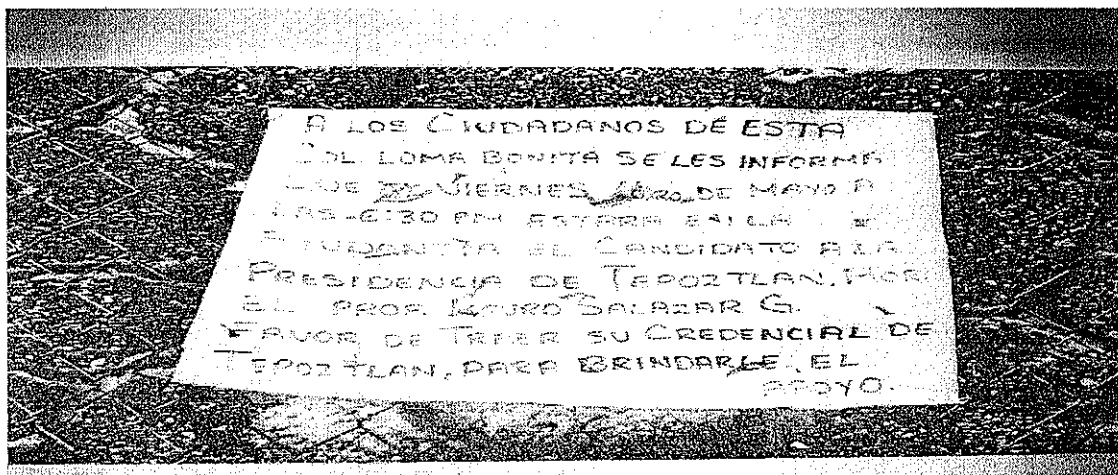 A LOS CIUDADANOS DE ESTA
COL LOMA BONITA SE LES INFORMA
QUE VIERNES DE MAYO A
LAS 6:30 PM ESTARA EN LA
EL CANDIDATO A LA
PRESIDENCIA DE TEPOZTLAN, MOR
EL PROF. SALAZAR G.
FAVOR DE TRAER SU CREDENCIAL DE
TEPOZTLAN, PARA BRINDARLE EL
APOYO.